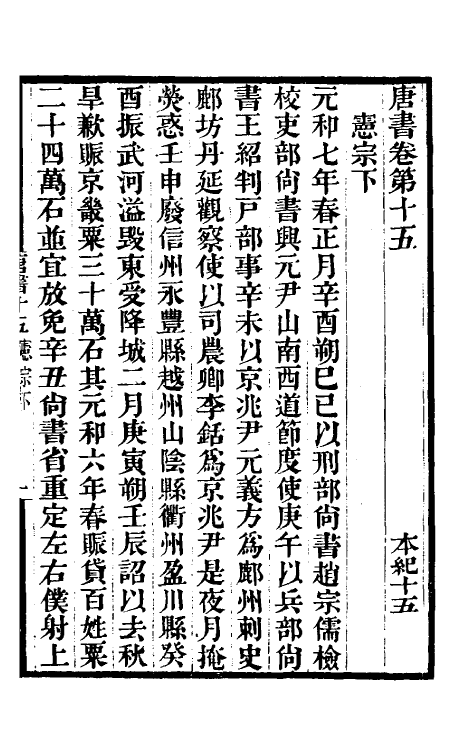 唐書卷第十五　本紀十五
憲宗下
元和七年春正月辛酉朔己巳以刑部尚書趙宗儒檢
校吏部尚書興元尹山南西道節度使庚午以兵部尚
書王紹判戶部事辛未以京兆尹元義方爲鄜州刺史
鄜坊丹延觀察使以司農卿李銛爲京兆尹是夜月掩
熒惑壬申廢信州永豐縣越州山陰縣衢州盈川縣癸
酉振武河溢毀東受降城二月庚寅朔壬辰詔以去秋
旱歉賑京畿粟三十萬石其元和六年春賑貸百姓粟
二十四萬石並宜放免辛丑尚書省重定左右僕射上
唐書十五憲宗下　一